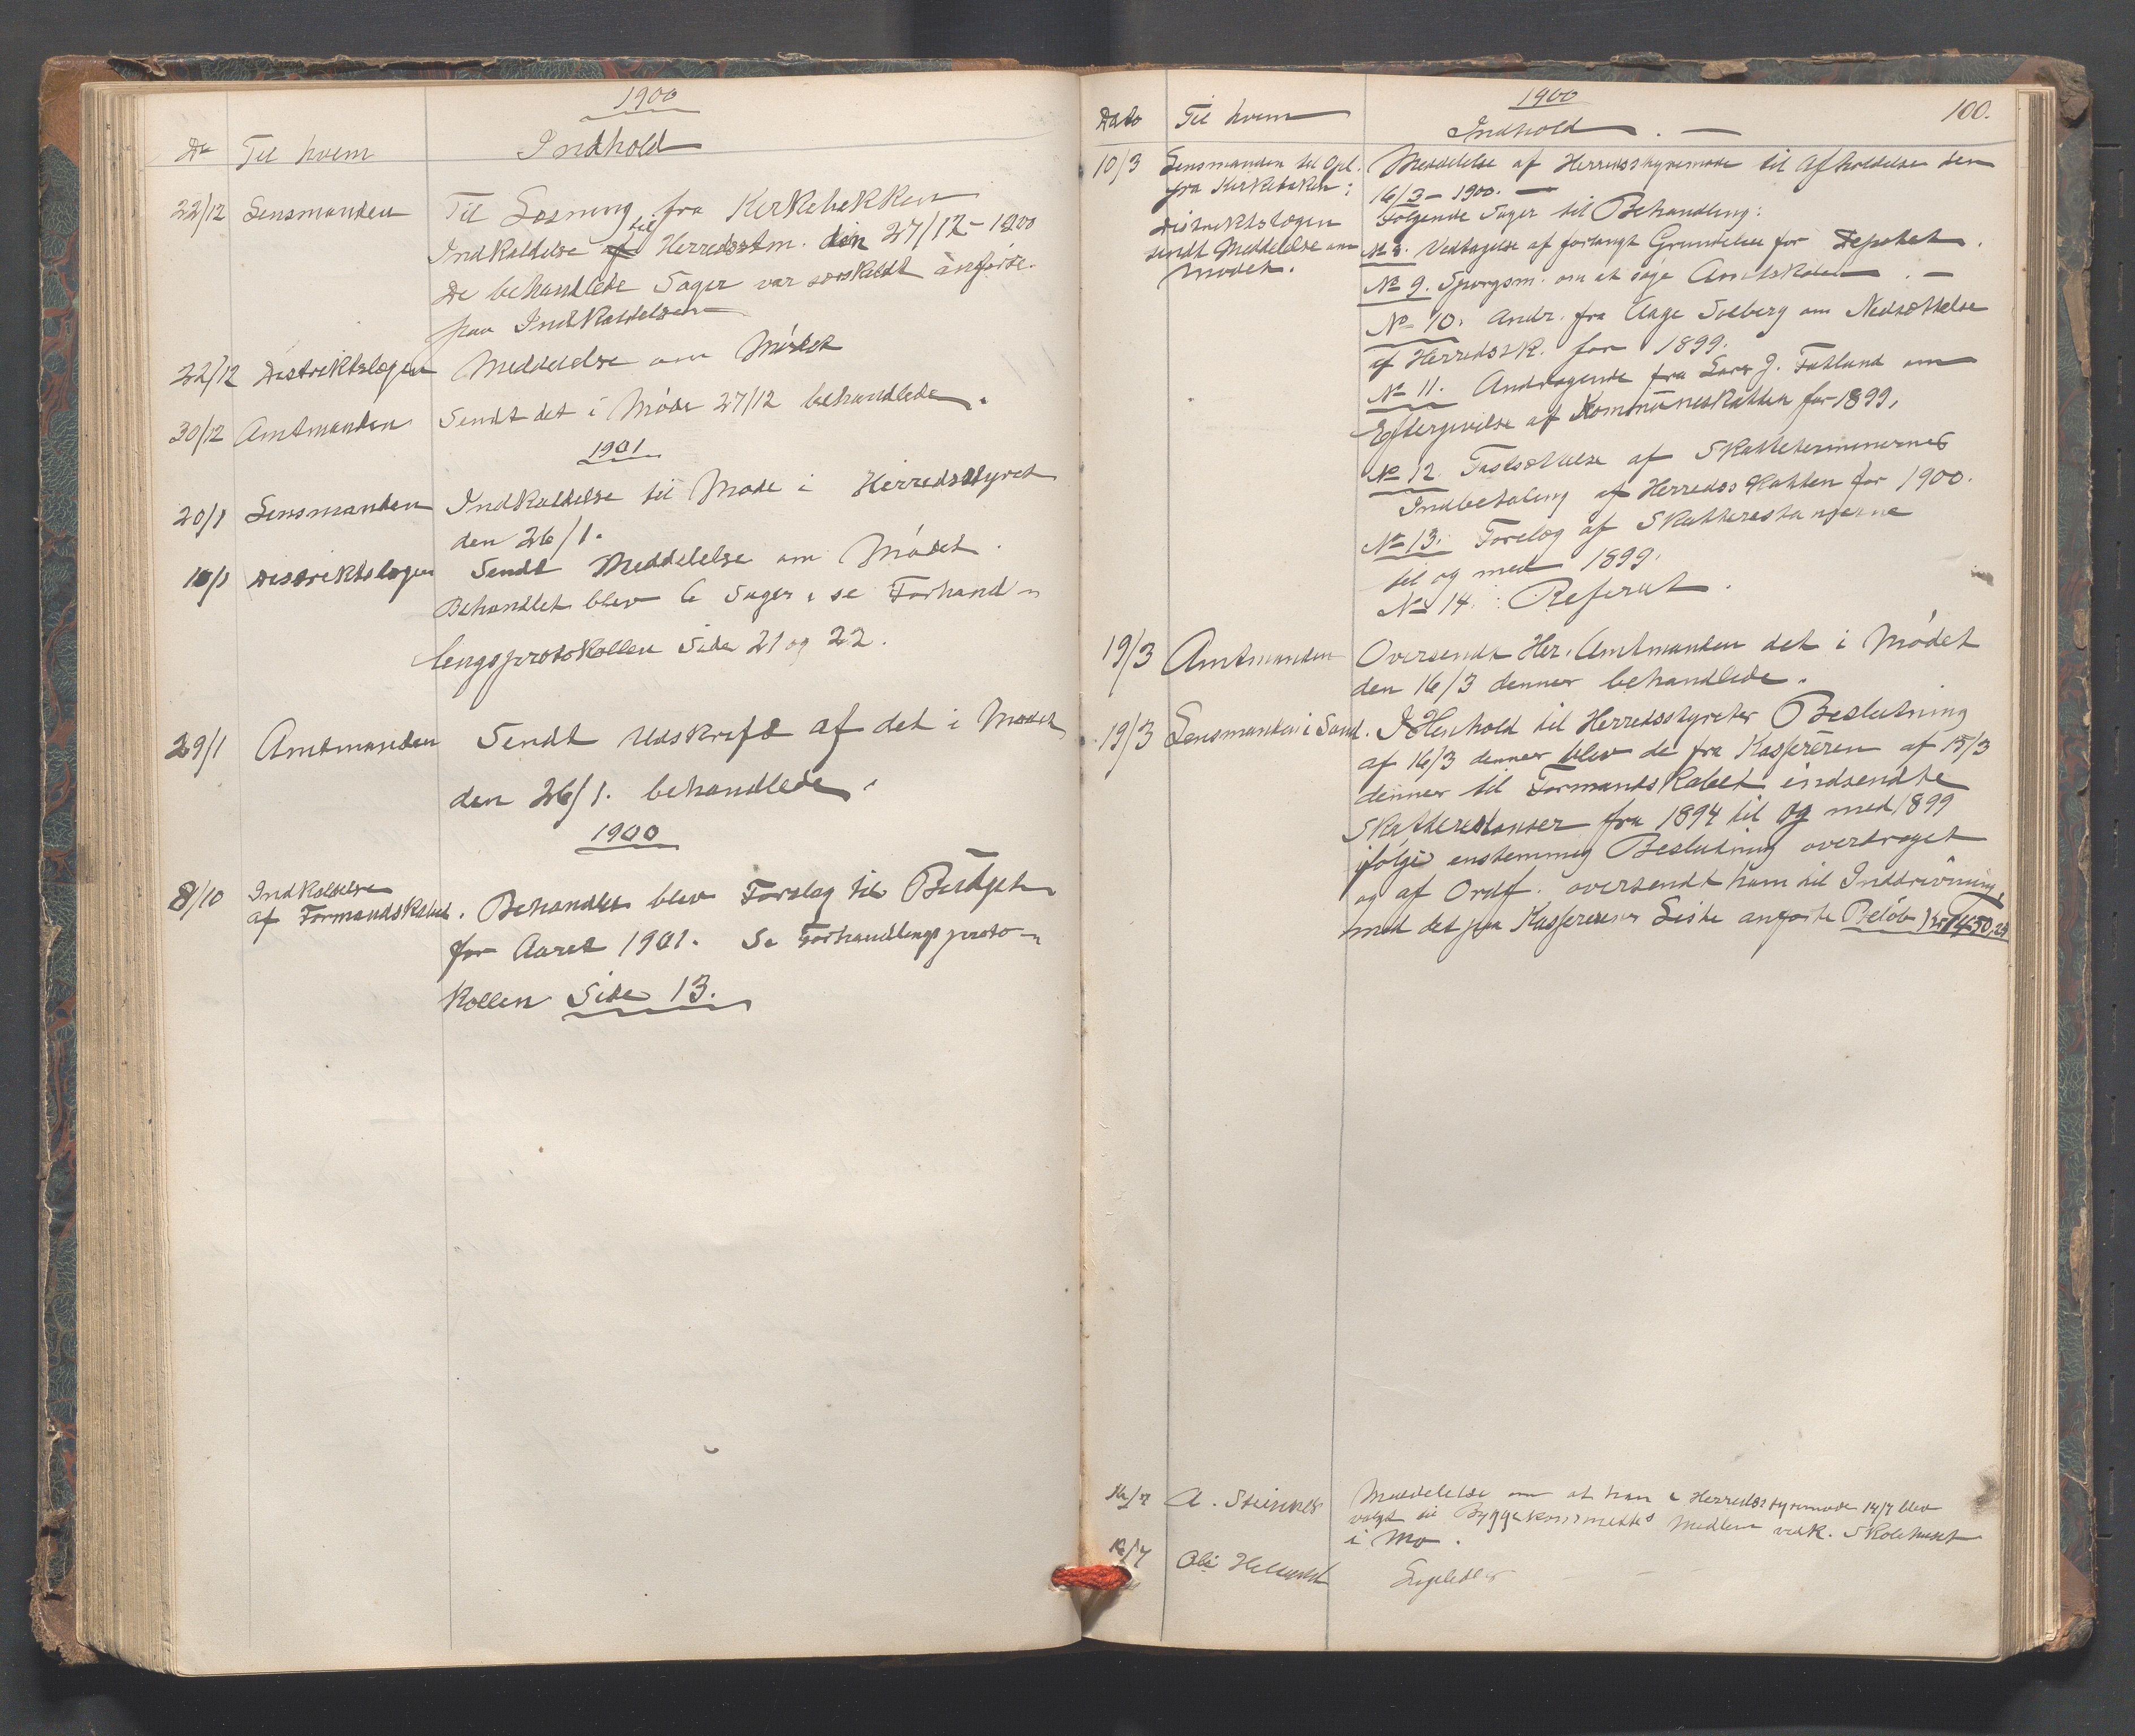 1900
Da Til hvem Indhold
22/12 Lensmanden Til Læsning fra Kirkebakken
Indkaldelse til Herredsstm. den 27/12-1900
De behandlede Sager var særskildt anførte
paa Indkaldelsen
22/12 Distriktslægen Meddelelse om Mødet
30/12 Amtmanden Sendt det i Møde 27/12 behandlede.
1901
20/1 Lensmanden Indkaldelse til Møde i Herredsstyret
den 26/1.
Distriktslægen Sendt Meddelelse om Mødet.
Behandlet blev 6 Sager, se Forhand-
lingsprotokollen Side 21 og 22.
29/1 Amtmanden Sendt Udskrift af det i Mødet
den 26/1. behandlede.
1900
8/10 Indkaldelse
af Formandskabet. Behandlet blev Forslag til Budget
for Aaret 1901. Se Forhandlingsproto-
kollen Side 13.
1900
100.
Dato Til hvem Indhold. —
10/3 Lensmanden til Opl. Meddelelse af Herredsstyremøde til Afholdelse den
fra Kirkebakken: 16/3-1900. —
Distriktslægen Følgende Sager til Behandling:
sendt Meddelelse om No 8. Vedtagelse af forlangt Grundelse for Depotet.
Mødet. No 9. Spørgsm. om at søge Amtskolen. —
No 10. Andr. fra Aage Solberg om Nedsættelse
af Herredssk. for 1899.
No 11. Andragende fra Lars J. Fatland om
Eftergivelse af Kommuneskatten for 1899.
No 12. Fastsættelse af Skatteterminernes
Indbetaling af Herredsskatten for 1900.
No 13. Forelæg af Skatterestanserne
til og med 1899.
No 14. Referat.
19/3 Amtmanden Oversendt Her. Amtmanden det i Mødet
den 16/3 denner behandlede.
19/3 Lensmanden i Sand. I Henhold til Herredsstyrets Beslutning
af 16/3 denner blev de fra Kasfereren af 15/3
denner til Formandskabet indsendte
Skatterestanser fra 1894 til og med 1899
ifølge enstemmig Beslutning overdraget
og af Ordf. oversendt ham til Inddrivning,
med det paa Kasfererens Liste anførte Beløb Kr 1450,24
16/7 A. Steinnes Meddelelse om at han i Herredsstyremøde 14/7 blev
valgt til Byggekommites Medlem vedk. Skolehuset
i Mo.